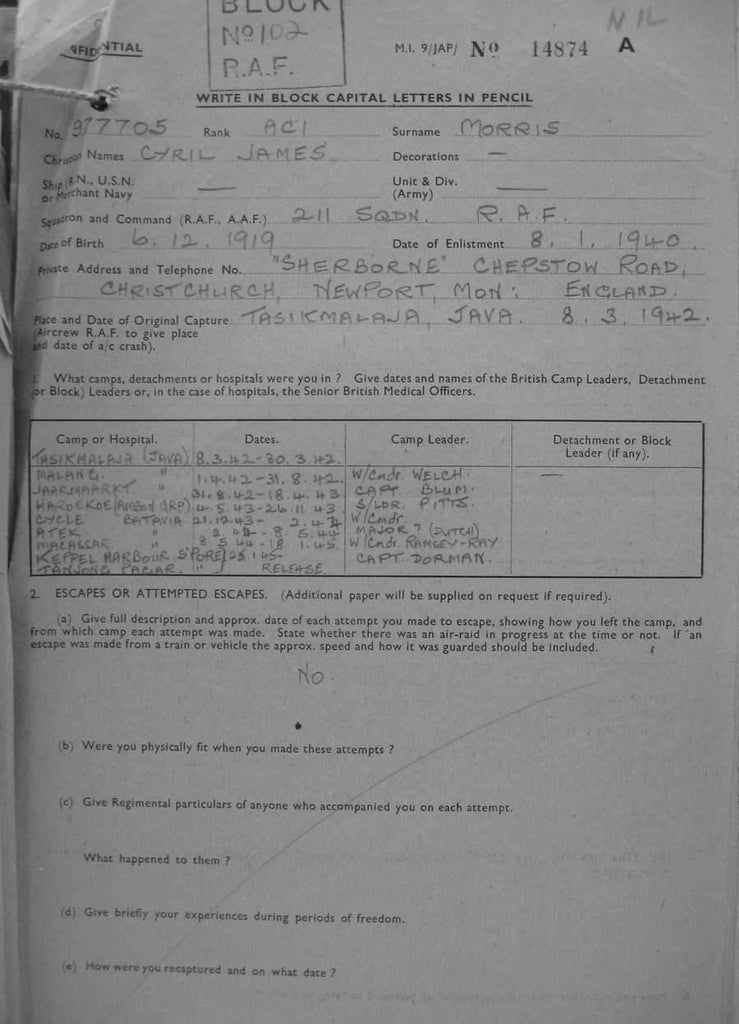 BLOCK
Nº 102
R.A.F.
NIL
M.I. 9/JAP/ Nº 14874 A
WRITE IN BLOCK CAPITAL LETTERS IN PENCIL
No. 977705 Rank AC1 Surname MORRIS
Names CYRIL JAMES Decorations —
Ship R.N., U.S.N. or Merchant Navy — Unit & Div. (Army) —
Squadron and Command (R.A.F., A.A.F.) 211 SQDN. R.A.F.
Date of Birth 6.12.1919 Date of Enlistment 8.1.1940
Private Address and Telephone No. "SHERBORNE" CHEPSTOW ROAD,
CHRISTCHURCH, NEWPORT, MON: ENGLAND.
Place and Date of Original Capture TASIKMALAJA, JAVA. 8.3.1942.
(Aircrew R.A.F. to give place
and date of a/c crash).
1. What camps, detachments or hospitals were you in ? Give dates and names of the British Camp Leaders, Detachment
(or Block) Leaders or, in the case of hospitals, the Senior British Medical Officers.
Camp or Hospital. Dates. Camp Leader. Detachment or Block Leader (if any).
TASIKMALAJA (JAVA) 8.3.42-30.3.42.
MALANG. " 1.4.42-31.8.42. W/Cmdr. WELCH. —
JAARMAARKT " 31.8.42-18.4.43 CAPT. BLUM.
HAROEKOE (AMBON ARP) 4.5.43-26.11.43 S/LDR. PITTS.
CYCLE BATAVIA 21.12.43- 2.44 W/Cmdr.
ATEK " 2.44-8.5.44 MAJOR ? (DUTCH).
MACASSAR " 8.5.44-18.1.45. W/Cmdr. RAMSEY-RAY
KEPPEL HARBOUR S'PORE 25.1.45- CAPT DORMAN.
TANJONG PAGAR. " RELEASE
2. ESCAPES OR ATTEMPTED ESCAPES. (Additional paper will be supplied on request if required).
(a) Give full description and approx. date of each attempt you made to escape, showing how you left the camp, and
from which camp each attempt was made. State whether there was an air-raid in progress at the time or not. If an
escape was made from a train or vehicle the approx. speed and how it was guarded should be included.
No.
(b) Were you physically fit when you made these attempts ?
(c) Give Regimental particulars of anyone who accompanied you on each attempt.
What happened to them ?
(d) Give briefly your experiences during periods of freedom.
(e) How were you recaptured and on what date ?